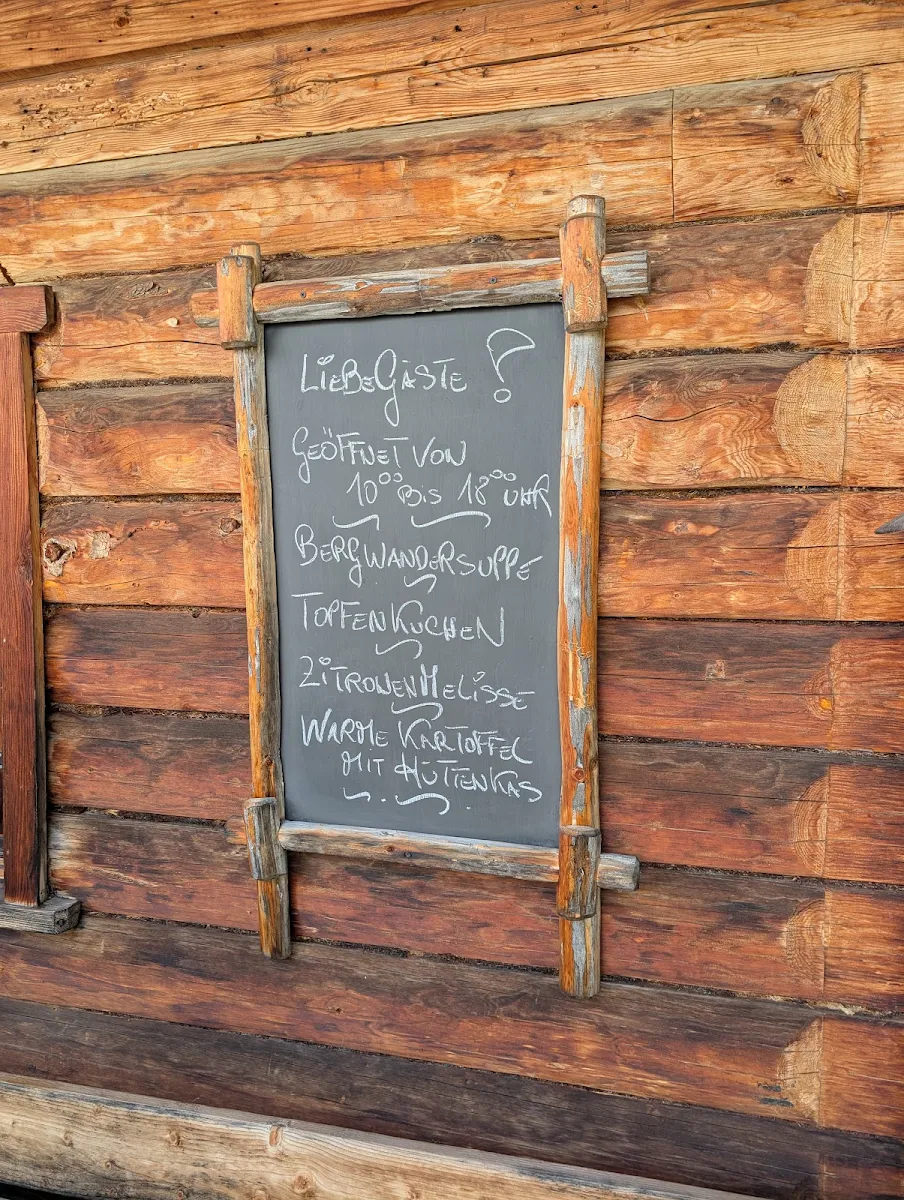 LIEBE GÄSTE!
GEÖFFNET VON
10⁰⁰ BIS 18⁰⁰ UHR
BERGWANDERSUPPE
TOPFENKUCHEN
ZITRONENMELISSE
WARME KARTOFFEL
MIT HÜTTENKAS